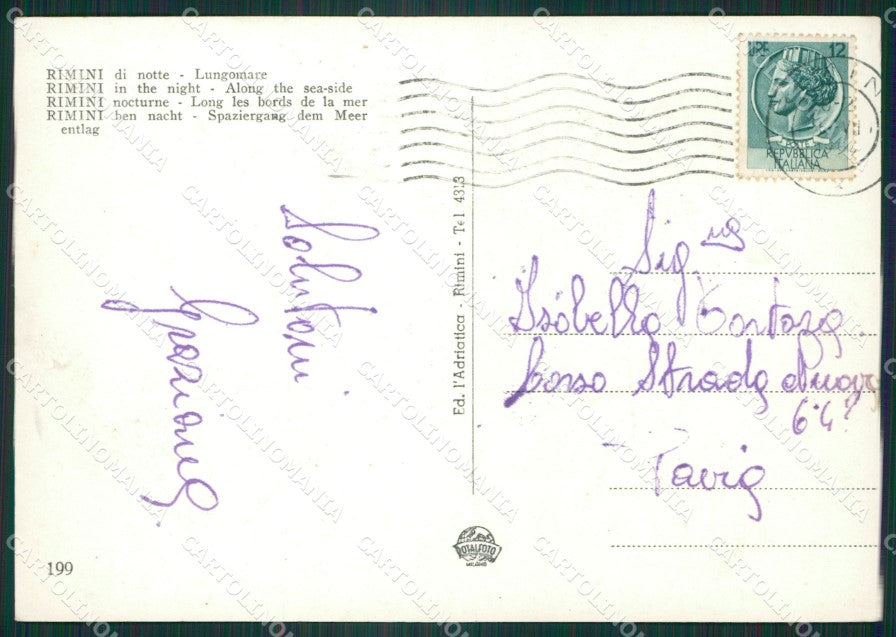 RIMINI di notte - Lungomare
RIMINI in the night - Along the sea-side
RIMINI nocturne - Long les bords de la mer
RIMINI ben nacht - Spaziergang dem Meer
entlag
LIRE 12
POSTE
REPVBBLICA
ITALIANA
Saluti
Graziana
Ed. l'Adriatica - Rimini - Tel 4313
Sig.na
Isabella
Corso Strada Nuova
64
Pavia
TOTALFOTO
MILANO
199
CARTOLINOMANIA